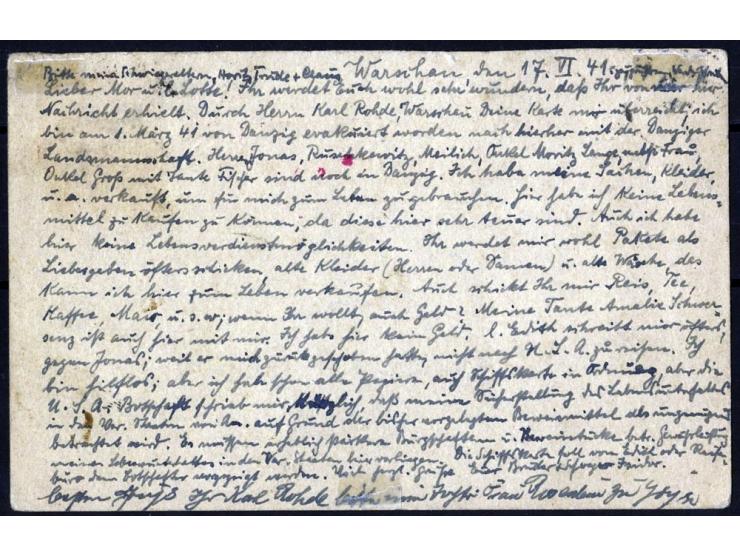 Bitte mein Schwiegereltern, Moritz Trude + Claus Warschau, den 17. VI. 41.
Lieber Mor u. l. Lotte! Ihr werdet Euch wohl sehr wundern, daß Ihr von hier
Nachricht erhielt. Durch Herrn Karl Rohde, Warschau Deine Karte mir überreicht; ich
bin am 1. März 41 von Danzig evakuiert worden nach hierher mit der Danziger
Landsmannschaft. Herr Jonas, Ruschkewitz, Meilich, Onkel Moritz Lange, nebst Frau,
Onkel Groß mit Tante Fischer sind noch in Danzig. Ich habe meine Sachen, Kleider
u. a. verkauft, um für mich zum Leben zu gebrauchen. Hier habe ich keine Lebens-
mittel zu kaufen zu können, da diese hier sehr teuer sind. Auch ich habe
hier keine Lebensverdienstmöglichkeiten. Ihr werdet mir wohl Pakete als
Liebesgaben öfters schicken, alte Kleider (Herren oder Damen) u. alte Wäsche, das
kann ich hier zum Leben verkaufen. Auch schickt Ihr mir Reis, Tee,
Kaffee, u. s. w; wenn Ihr wollt, auch Geld? Meine Tante Amalie Schwer-
senz ist auch hier mit mir. Ich habe hier kein Geld. l. Edith schreibt mir öfters,
gegen Jonas; weil er mich zurückgeschoben hatte, nicht nach U. S. A. zu reisen. Ich
bin hilflos; aber ich habe schon alle Papiere, auch Schiffskarte in Ordnung, aber die
U. S. A. Botschaft schrieb mir, daß meine Sicherstellung des Lebensunterhaltes
in den Ver. Staaten von Am. auf Grund der bisher vorgelegten Beweismittel als ungenügend
betrachtet wird. Es müssen erheblich stärkere Bürgschaften u.
meines Lebensunterhaltes in den Ver. Staaten hier vorliegen. Die Schiffskarte soll von Edith oder Reise-
büro dem vorgelegt werden. Viel herzl. Grüße Euer Bruder u. Schwager
besten Gruß Ihr Karl Rohde bitte Frau